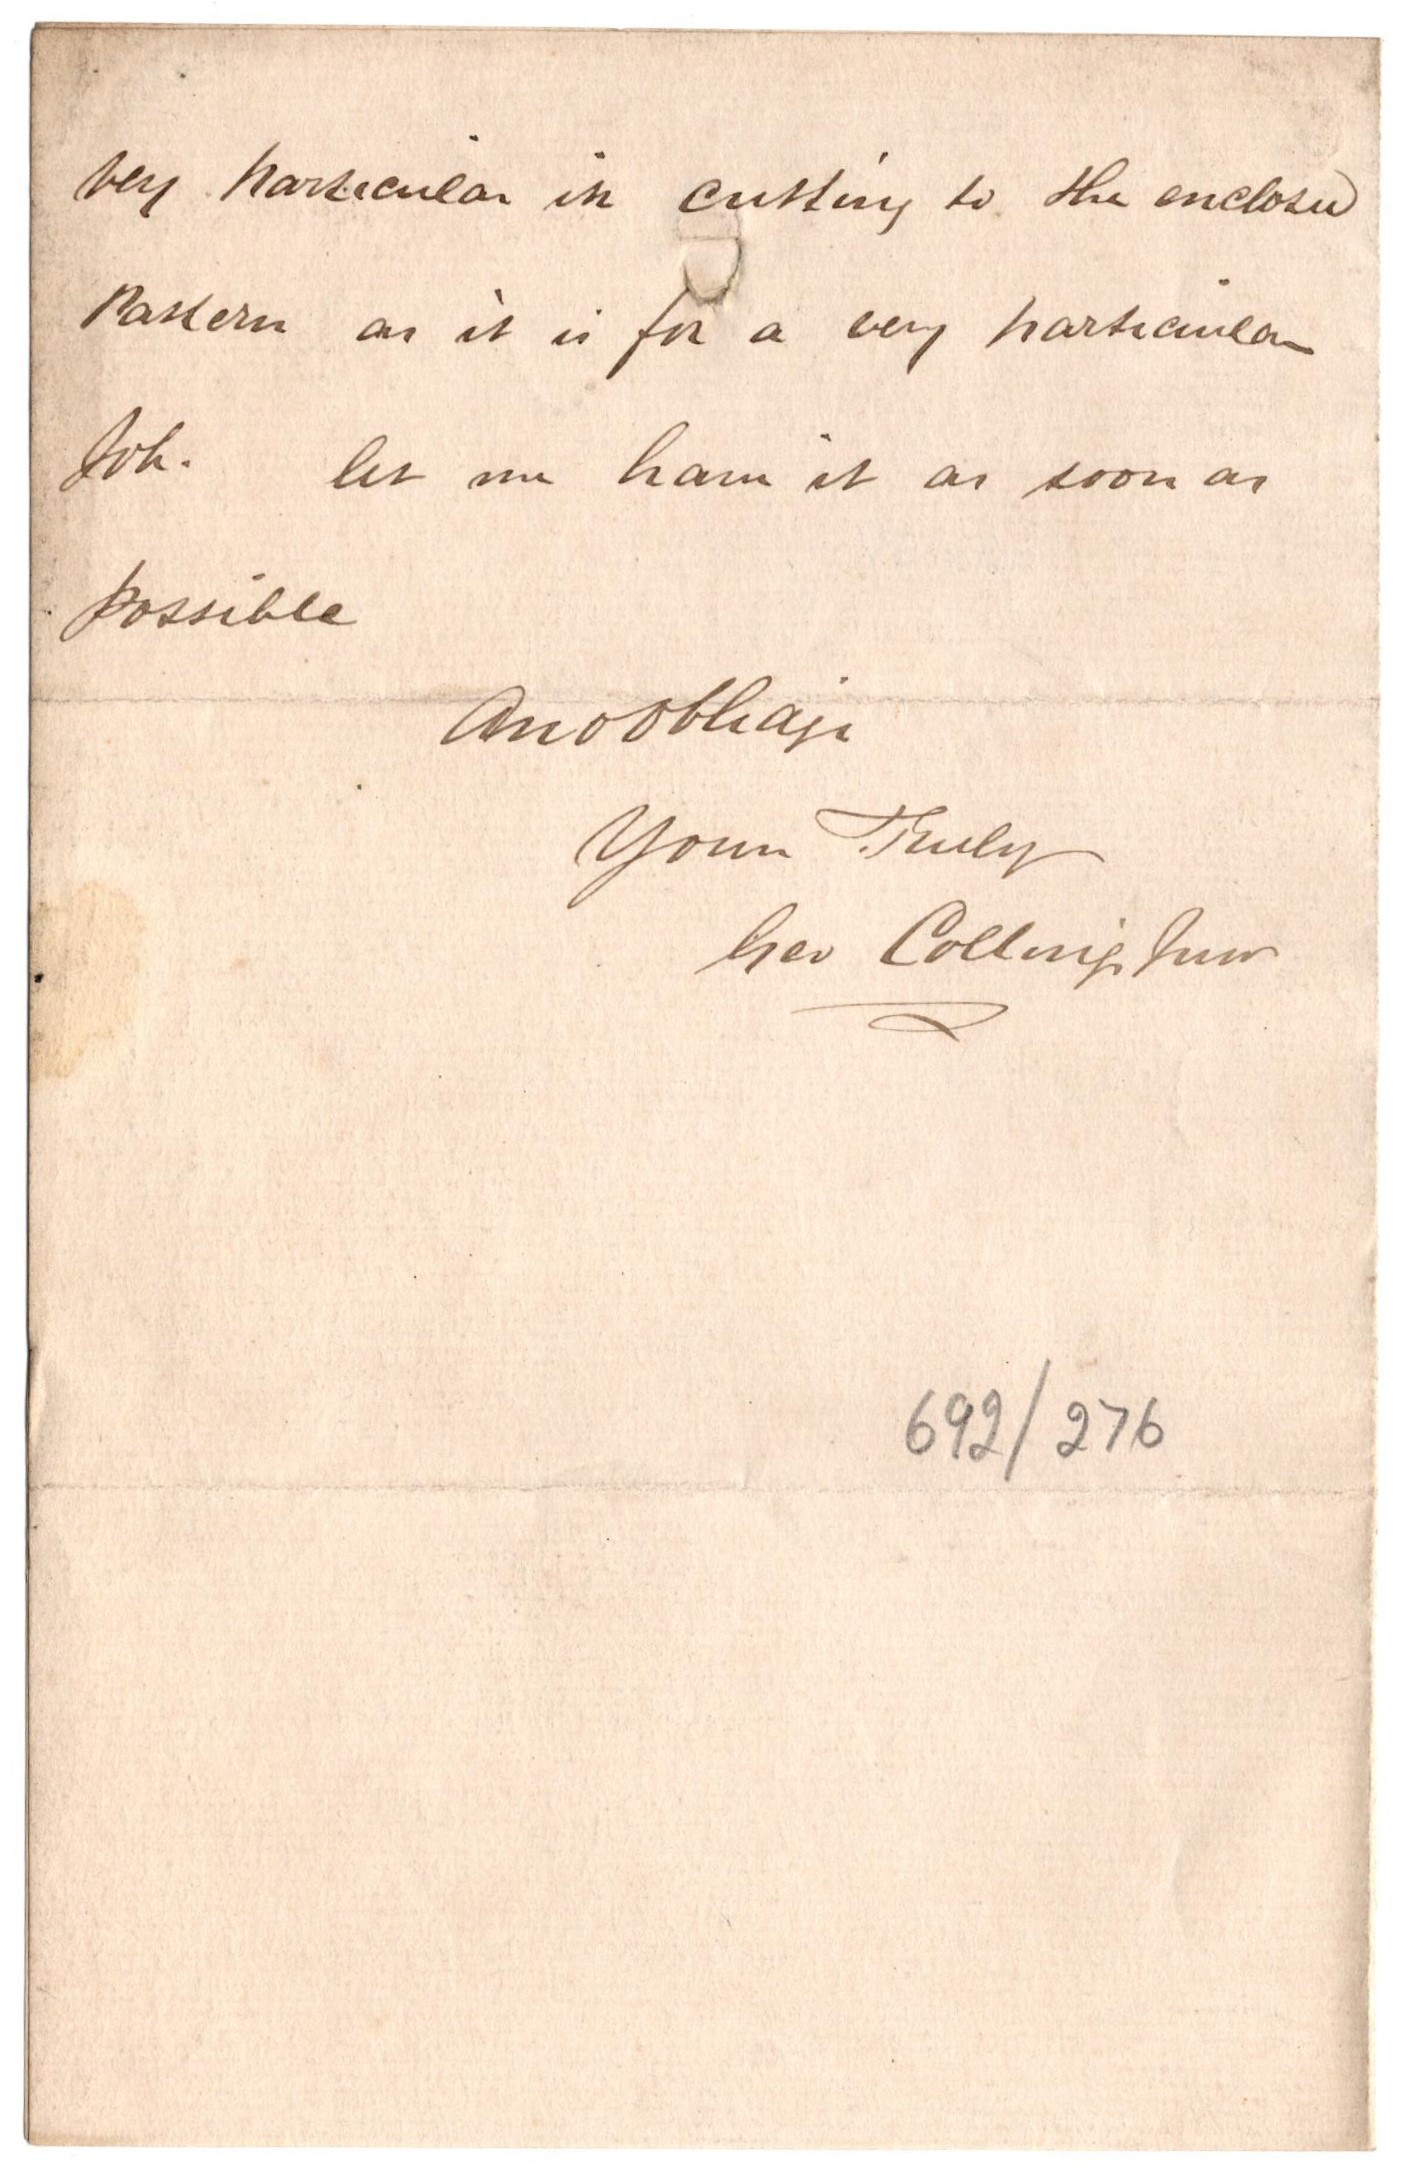 very particular in cutting to the enclosed
Pattern as it is for a very particular
Job. let me have it as soon as
possible
And Oblige
Yours Truly
Geo Collings Junr
692/276